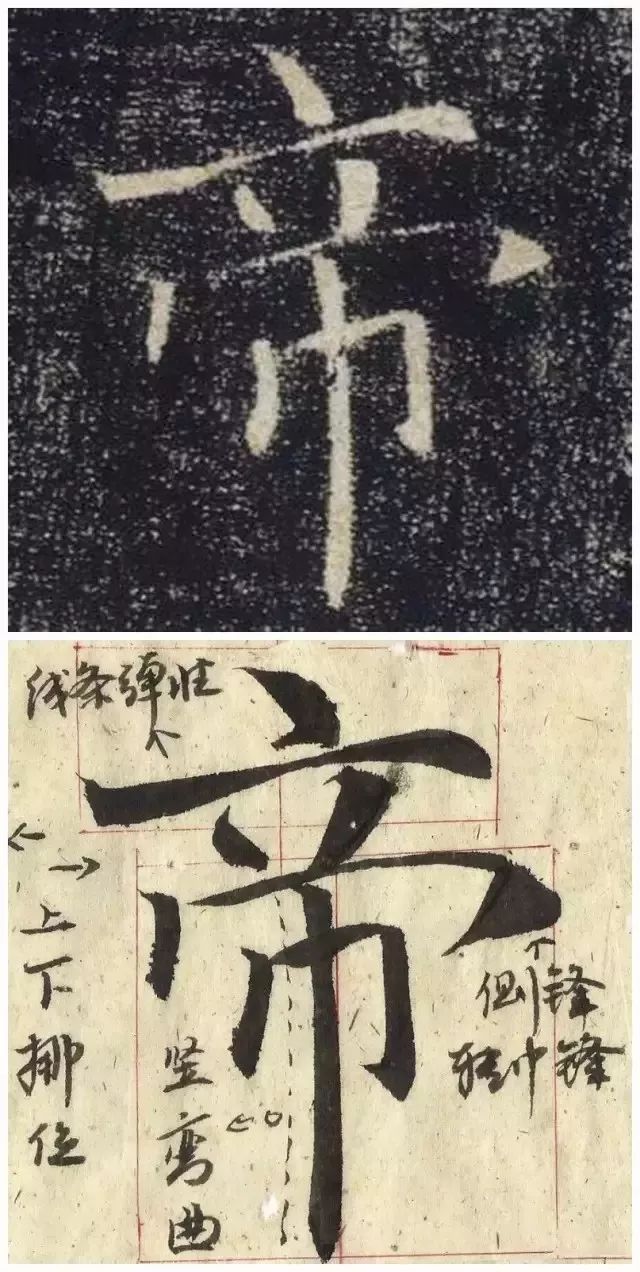 帝
线条弹性
帝
上下挪位
侧锋
转中锋
竖弯曲